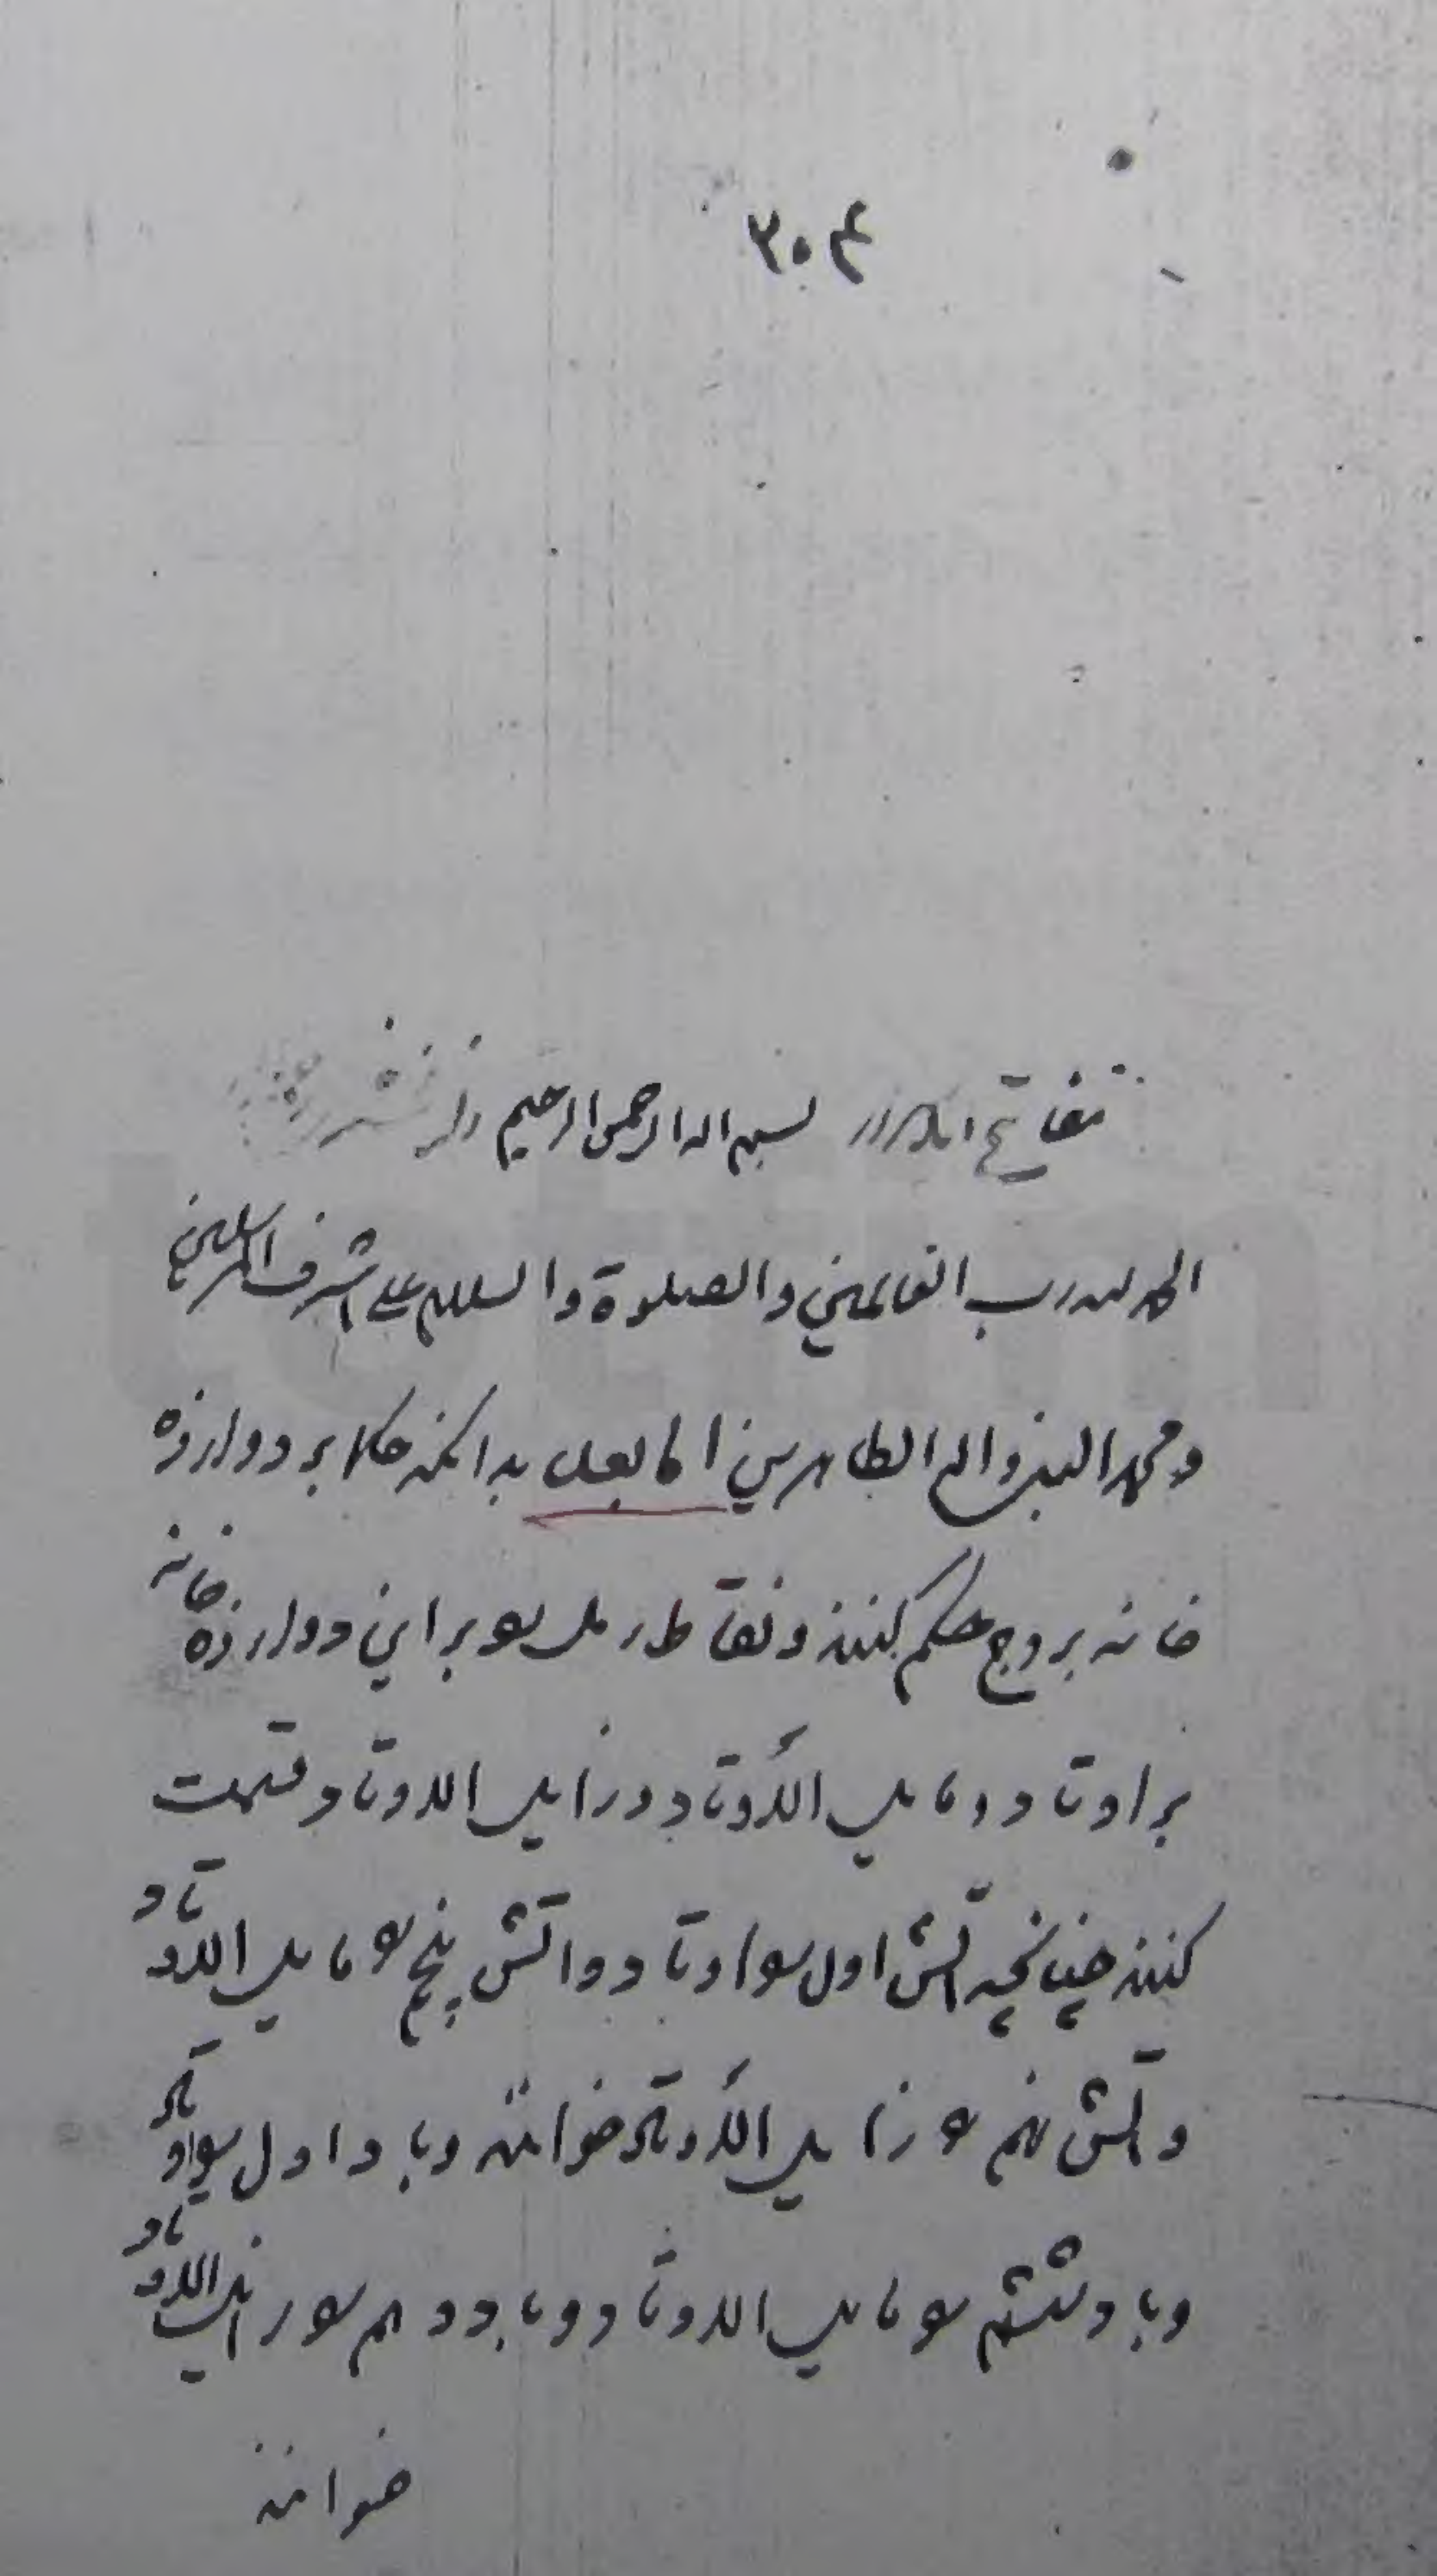 ۳۰۴
بسم الله الرحمن الرحیم
الحمد لله رب العالمین والصلوة والسلام علی اشرف المرسلین
و محمد النبی واله الطاهرین اما بعد بدانکه حکما بر دوازده
خانه بروج حکم کنند و نقاط رمل بر این دوازده خانه
بر اوتاد و مایل الأوتاد و زایل الاوتاد قسمت
کنند چنانچه آتش اول اوتاد و آتش پنج مایل الاوتاد
و آتش نهم زایل الأوتاد خوانند و باد اول اوتاد
و باد ششم مایل الاوتاد و باد دهم زایل الاوتاد
خوانند